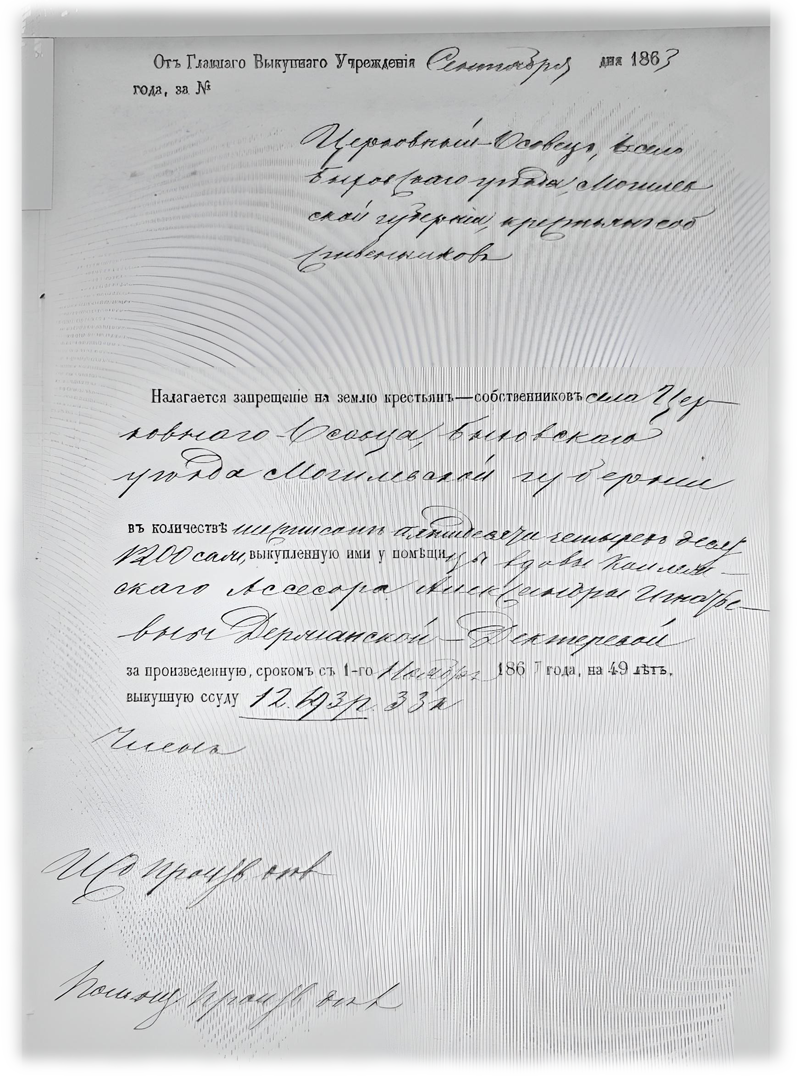 Отъ Главнаго Выкупнаго Учрежденія Сентября дня 1863
года, за №
Церковный-Осовецъ, село
Быховскаго уѣзда, Могилев
ской губерніи, крестьянъ соб
ственниковъ
Налагается запрещеніе на землю крестьянъ—собственниковъ села Цер-
ковнаго-Осовца, Быховскаго
уѣзда Могилевской губерніи
въ количествѣ шестисотъ пятидесяти четырехъ десят
1200 саж, выкупленную ими у помѣщицы вдовы Коллеж-
скаго Ассесора Александры Игнатье-
вны Дерманской-Дехтеревой
за произведенную, срокомъ съ 1-го Ноября 186 года, на 49 лѣтъ,
выкупную ссуду 12.493р. 33к
Членъ
Произв
Помощ Произв